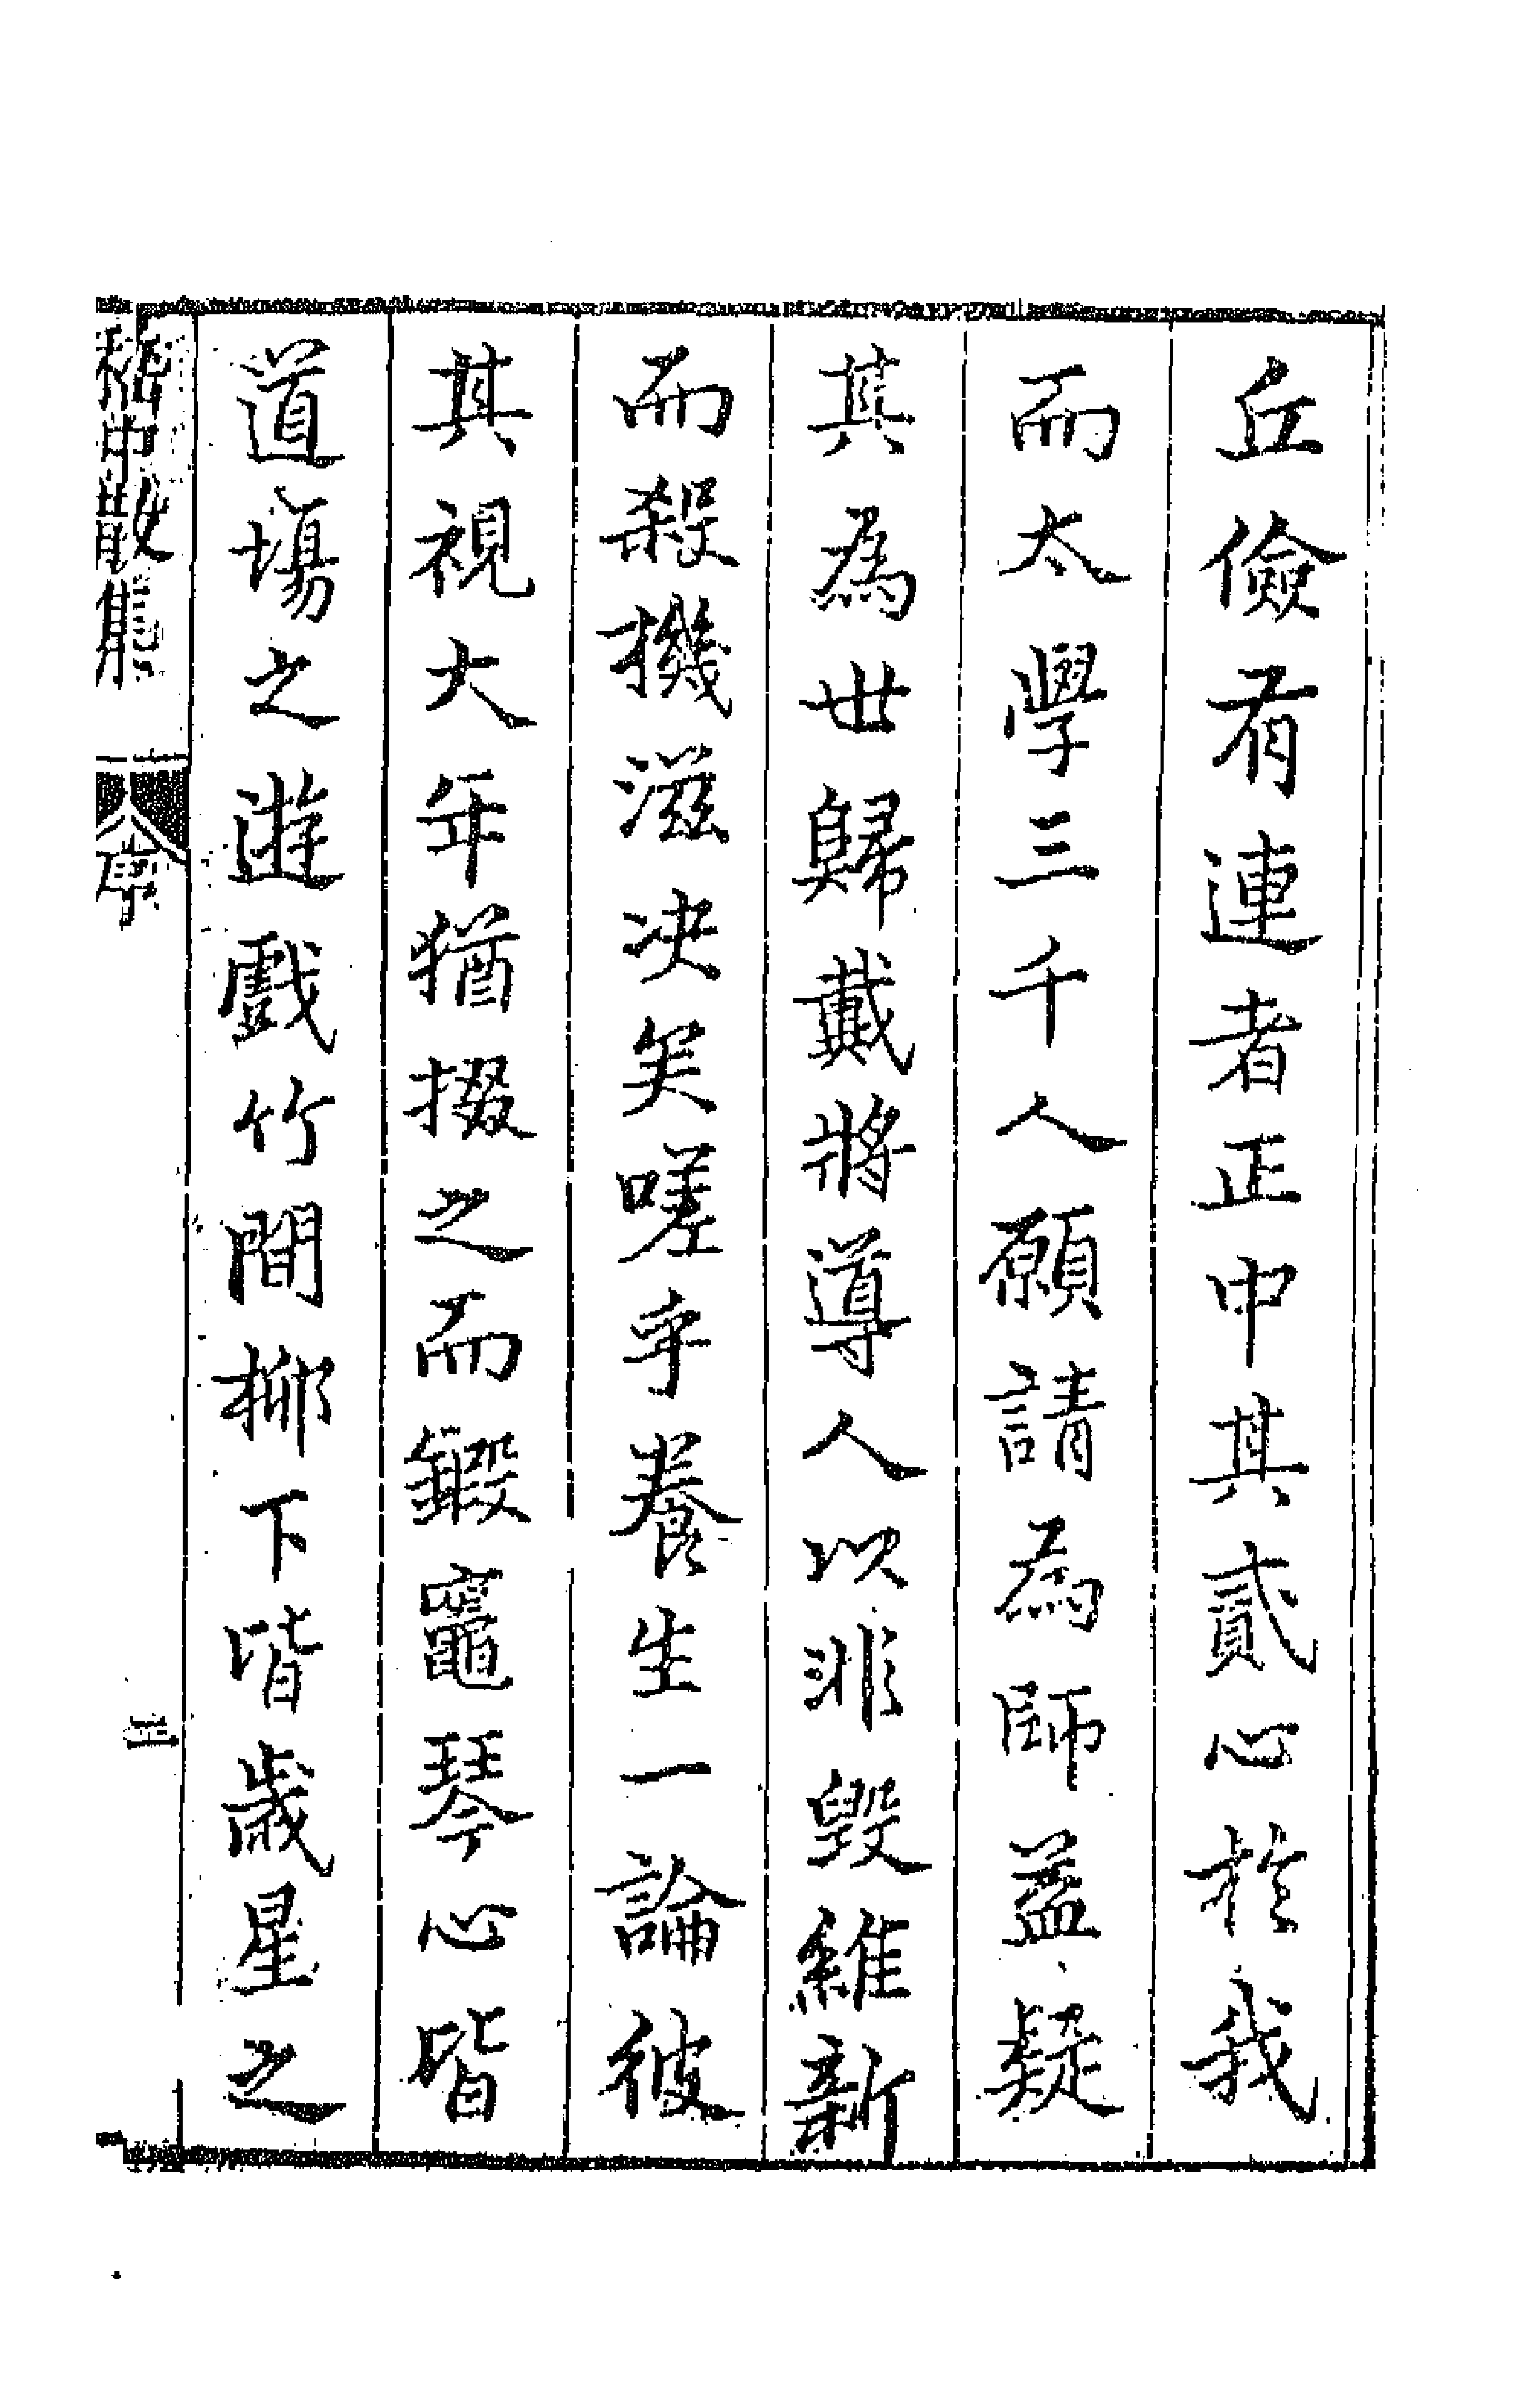 丘儉有連者正中其貳心於我
而太學三千人願請為師益疑
其為世歸戴將導人以非毀維新
而殺機滋決矣嗟乎養生一論彼
其視大年猶掇之而鍛竈琴心皆
道場之遊戲竹間柳下皆歲星之
嵇中散集 序 三